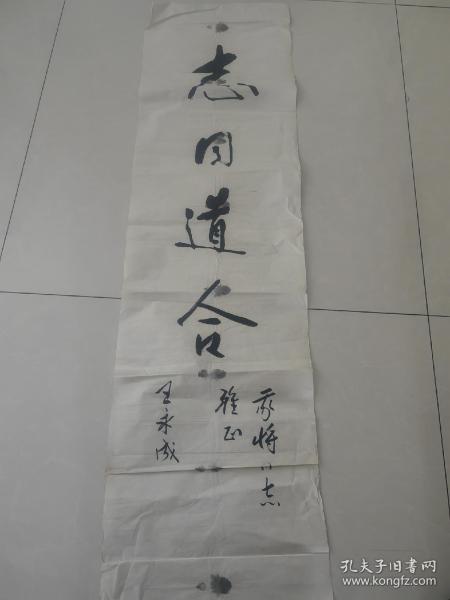 志同道合
雅正
王永成
孔夫子旧书网
www.kongfz.com